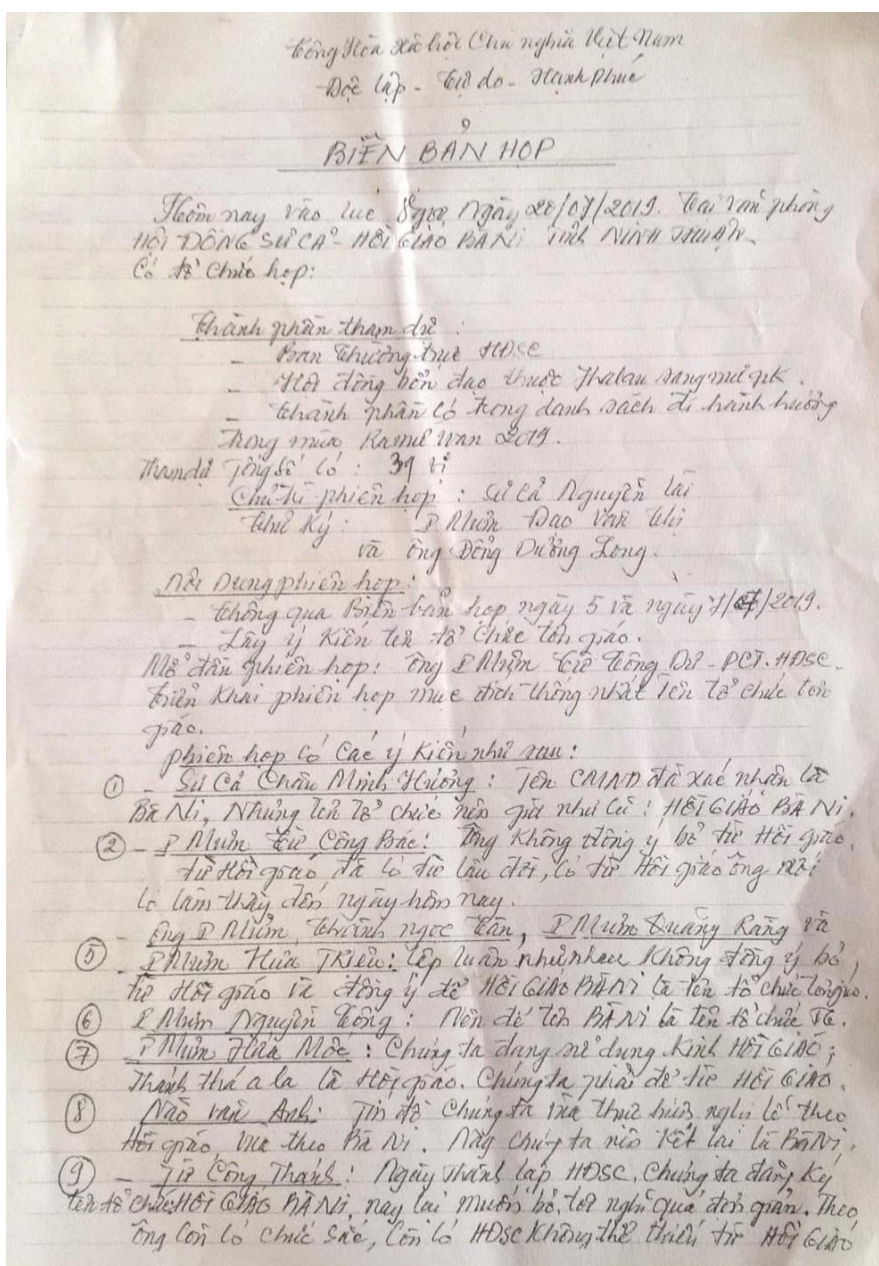 Cộng Hòa Xã hội Chủ nghĩa Việt Nam
Độc lập - Tự do - Hạnh Phúc
BIÊN BẢN HỌP
Hôm nay vào lúc 8 giờ, Ngày 28/07/2019. Tại văn phòng
HỘI ĐỒNG SƯ CẢ - HỒI GIÁO BÀ NI TỈNH NINH THUẬN
Có tổ chức họp:
Thành phần tham dự :
- Ban thường trực HĐSC
- Hội đồng bổn đạo thuộc sang mư
- thành phần có trong danh sách đi hành hương
trong mùa Ramưwan 2019.
Tham dự Tổng số có : 39 vị
Chủ trì phiên họp : Sư Cả Nguyễn Lài
thư Ký : I Mưm Đạo Văn Thị
và ông Đồng Dương Long.
Nội Dung phiên họp :
- thông qua Biên bản họp ngày 5 và ngày 7/07/2019.
- Lấy ý Kiến tên tổ chức tôn giáo.
Mở đầu phiên họp : Ông I Mưm Từ Công Dư - PCT. HĐSC.
triển Khai phiên họp mục đích thống nhất Tên tổ chức tôn
giáo.
phiên họp có các ý Kiến như sau :
① - Sư Cả Châu Minh Hương : Tên CMND đã xác nhận là
Bà Ni, Nhưng tên tổ chức nên giữ như cũ : HỒI GIÁO BÀ NI.
② - I Mưm Từ Công Bác : Ông không đồng ý bỏ từ Hồi giáo.
từ Hồi giáo đã có từ lâu đời, có từ Hồi giáo ông mới
có làm thầy đến ngày hôm nay.
- Ông I Mưm Thành ngọc Tân, I Mưm Quảng Ràng và
⑤ - I Mưm Hứa Triều : lập luận như nhau không đồng ý bỏ,
từ Hồi giáo và đồng ý để HỒI GIÁO BÀ NI là tên tổ chức tôn giáo.
⑥ I Mưm Nguyễn Tổng : Nên để tên BÀ NI là tên tổ chức TG.
⑦ I Mưm Hứa Mốc : Chúng ta đang sử dụng Kinh HỒI GIÁO;
Thánh a la là Hồi giáo. Chúng ta phải để từ HỒI GIÁO.
⑧ Não Văn Anh : Tín đồ chúng ta vừa thực hiện nghi lễ theo
Hồi giáo, vừa theo Bà Ni. Nay chúng ta nên kết lại là BàNi.
⑨ - Từ Công Thành : Ngày thành lập HĐSC, chúng ta đăng Ký
tên tổ chức HỒI GIÁO BÀ NI, nay lại muốn bỏ, tôi nghĩ quá đơn giản. Theo
ông còn có chức sắc, còn có HĐSC không thể thiếu từ HỒI GIÁO